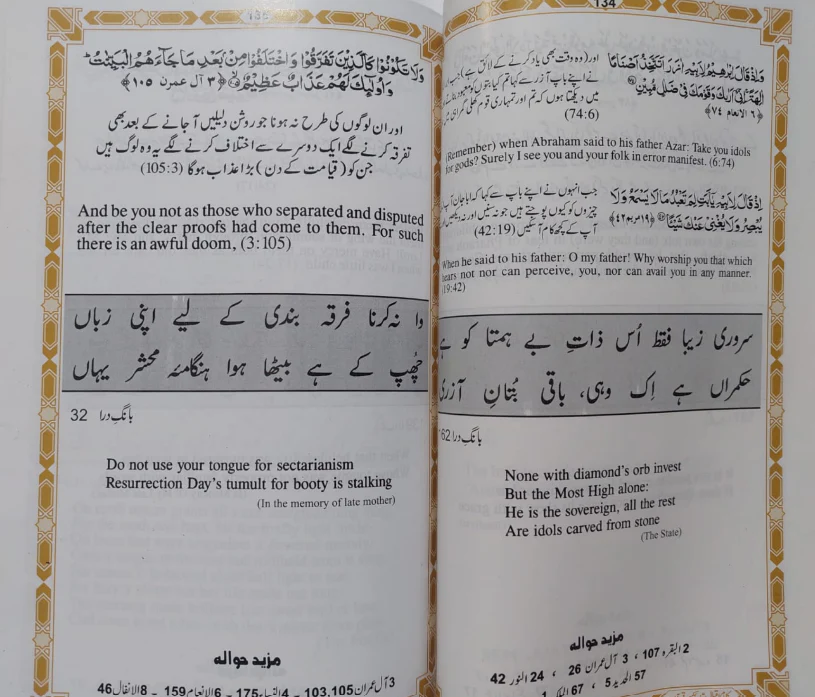 134
وَاِذْ قَالَ اِبْرٰهِيْمُ لِاَبِيْهِ اٰزَرَ اَتَتَّخِذُ اَصْنَامًا
اٰلِهَةً اِنِّيْ اَرٰىكَ وَقَوْمَكَ فِيْ ضَلٰلٍ مُّبِيْنٍ
﴿۶ الانعام ۷۴﴾
اور (وہ وقت بھی یاد کرنے کے لائق ہے) جب
نے اپنے باپ آزر سے کہا تم کیا بتوں کو معبود
میں دیکھتا ہوں کہ تم اور تمہاری قوم کھلی گمراہی
(74:6)
(Remember) when Abraham said to his father Azar: Take you idols
for gods? Surely I see you and your folk in error manifest. (6:74)
اِذْ قَالَ لِاَبِيْهِ يٰٓاَبَتِ لِمَ تَعْبُدُ مَا لَا يَسْمَعُ وَلَا
يُبْصِرُ وَلَا يُغْنِيْ عَنْكَ شَيْئًا ﴿۱۹ مریم ۴۲﴾
جب انہوں نے اپنے باپ سے کہا کہ ابا جان آپ
چیزوں کو کیوں پوجتے ہیں جو نہ سنیں اور نہ دیکھیں
آپ کے کچھ کام آسکیں (42:19)
When he said to his father: O my father! Why worship you that which
hears not nor can perceive, you, nor can avail you in any manner.
(19:42)
سروری زیبا فقط اُس ذاتِ بے ہمتا کو ہے
حکمراں ہے اِک وہی، باقی بُتانِ آزری
بانگِ درا 62
None with diamond's orb invest
But the Most High alone:
He is the sovereign, all the rest
Are idols carved from stone
(The State)
مزید حوالہ
2 البقرہ 107، 3 آل عمران 26 ، 24 النور 42
57 الحدید 5 ، 67 الملک 1
135
وَلَا تَكُوْنُوْا كَالَّذِيْنَ تَفَرَّقُوْا وَاخْتَلَفُوْا مِنْ بَعْدِ مَا جَآءَهُمُ الْبَيِّنٰتُ
وَاُولٰٓئِكَ لَهُمْ عَذَابٌ عَظِيْمٌ ﴿۳ آل عمرن ۱۰۵﴾
اور ان لوگوں کی طرح نہ ہونا جو روشن دلیلیں آ جانے کے بعد بھی
تفرقہ کرنے لگے ایک دوسرے سے اختلاف کرنے لگے یہ وہ لوگ ہیں
جن کو (قیامت کے دن) بڑا عذاب ہوگا (105:3)
And be you not as those who separated and disputed
after the clear proofs had come to them. For such
there is an awful doom, (3:105)
وا نہ کرنا فرقہ بندی کے لیے اپنی زباں
چُھپ کے ہے بیٹھا ہوا ہنگامئہ محشر یہاں
بانگِ درا 32
Do not use your tongue for sectarianism
Resurrection Day's tumult for booty is stalking
(In the memory of late mother)
مزید حوالہ
3 آل عمران 103,105 ۔ 4 النساء 175 ۔ 6 الانعام 159 ۔ 8 الانفال 46